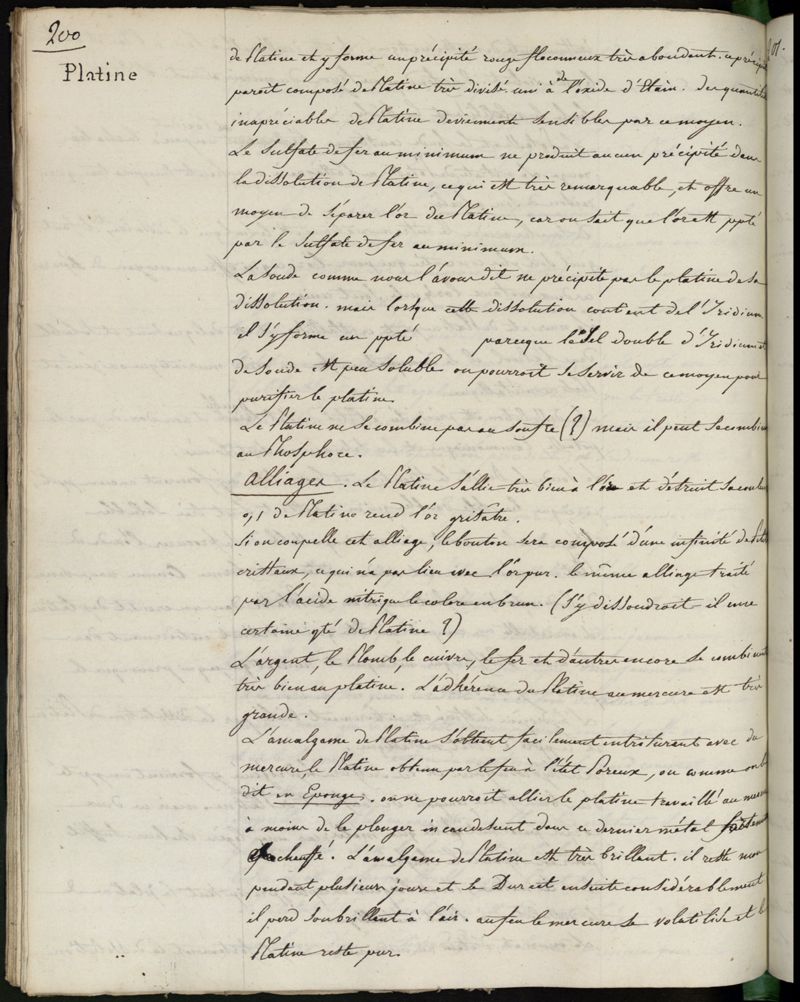 200
Platine
de Platine et y forme un précipité rouge floconneux très abondant. ce précipité
paroit composé de Platine très divisé uni à de l'oxide d'Etain. des quantités
inapréciables de Platine deviennent sensibles par ce moyen.
Le Sulfate de fer au minimum ne produit aucun précipité dans
la dissolution de Platine, ce qui est très remarquable, et offre un
moyen de séparer l'or du Platine, car on sait que l'or est ppté
par le Sulfate de fer au minimum.
La Soude comme nous l'avons dit ne précipite pas le platine de sa
dissolution. mais lorsque cette dissolution contient de l'Iridium
il s'y forme un ppté parceque le sel double d'Iridium et
de Soude est peu soluble on pourroit se servir de ce moyen pour
purifier le platine.
Le Platine ne se combine pas au soufre (?) mais il peut se combiner
au Phosphore.
Alliages. Le Platine s'allie très bien à l'or et détruit sa couleur
0,1 de Platine rend l'or grisatre.
Si on coupelle cet alliage, le bouton sera composé d'une infinité de petits
cristaux, ce qui n'a pas lieu avec l'or pur. le même alliage traité
par l'acide nitrique le colore en brun. (S'y dissoudroit-il une
certaine qté de Platine ?)
L'argent, le Plomb, le cuivre, le fer et d'autres encore se combinent
très bien au platine. L'adhérence du Platine au mercure est très
grande.
L'amalgame de Platine s'obtient facilement en triturant avec du
mercure, le Platine obtenu par le feu à l'état Poreux, ou comme on le
dit en Eponge. on ne pourroit allier le platine travaillé au mercure
à moins de le plonger incandescent dans ce dernier métal fortement
échauffé. L'amalgame de Platine est très brillant. il reste mou
pendant plusieurs jours et se Durcit ensuite considérablement
il perd son brillant à l'air. au feu le mercure se volatilise et le
Platine reste pur.